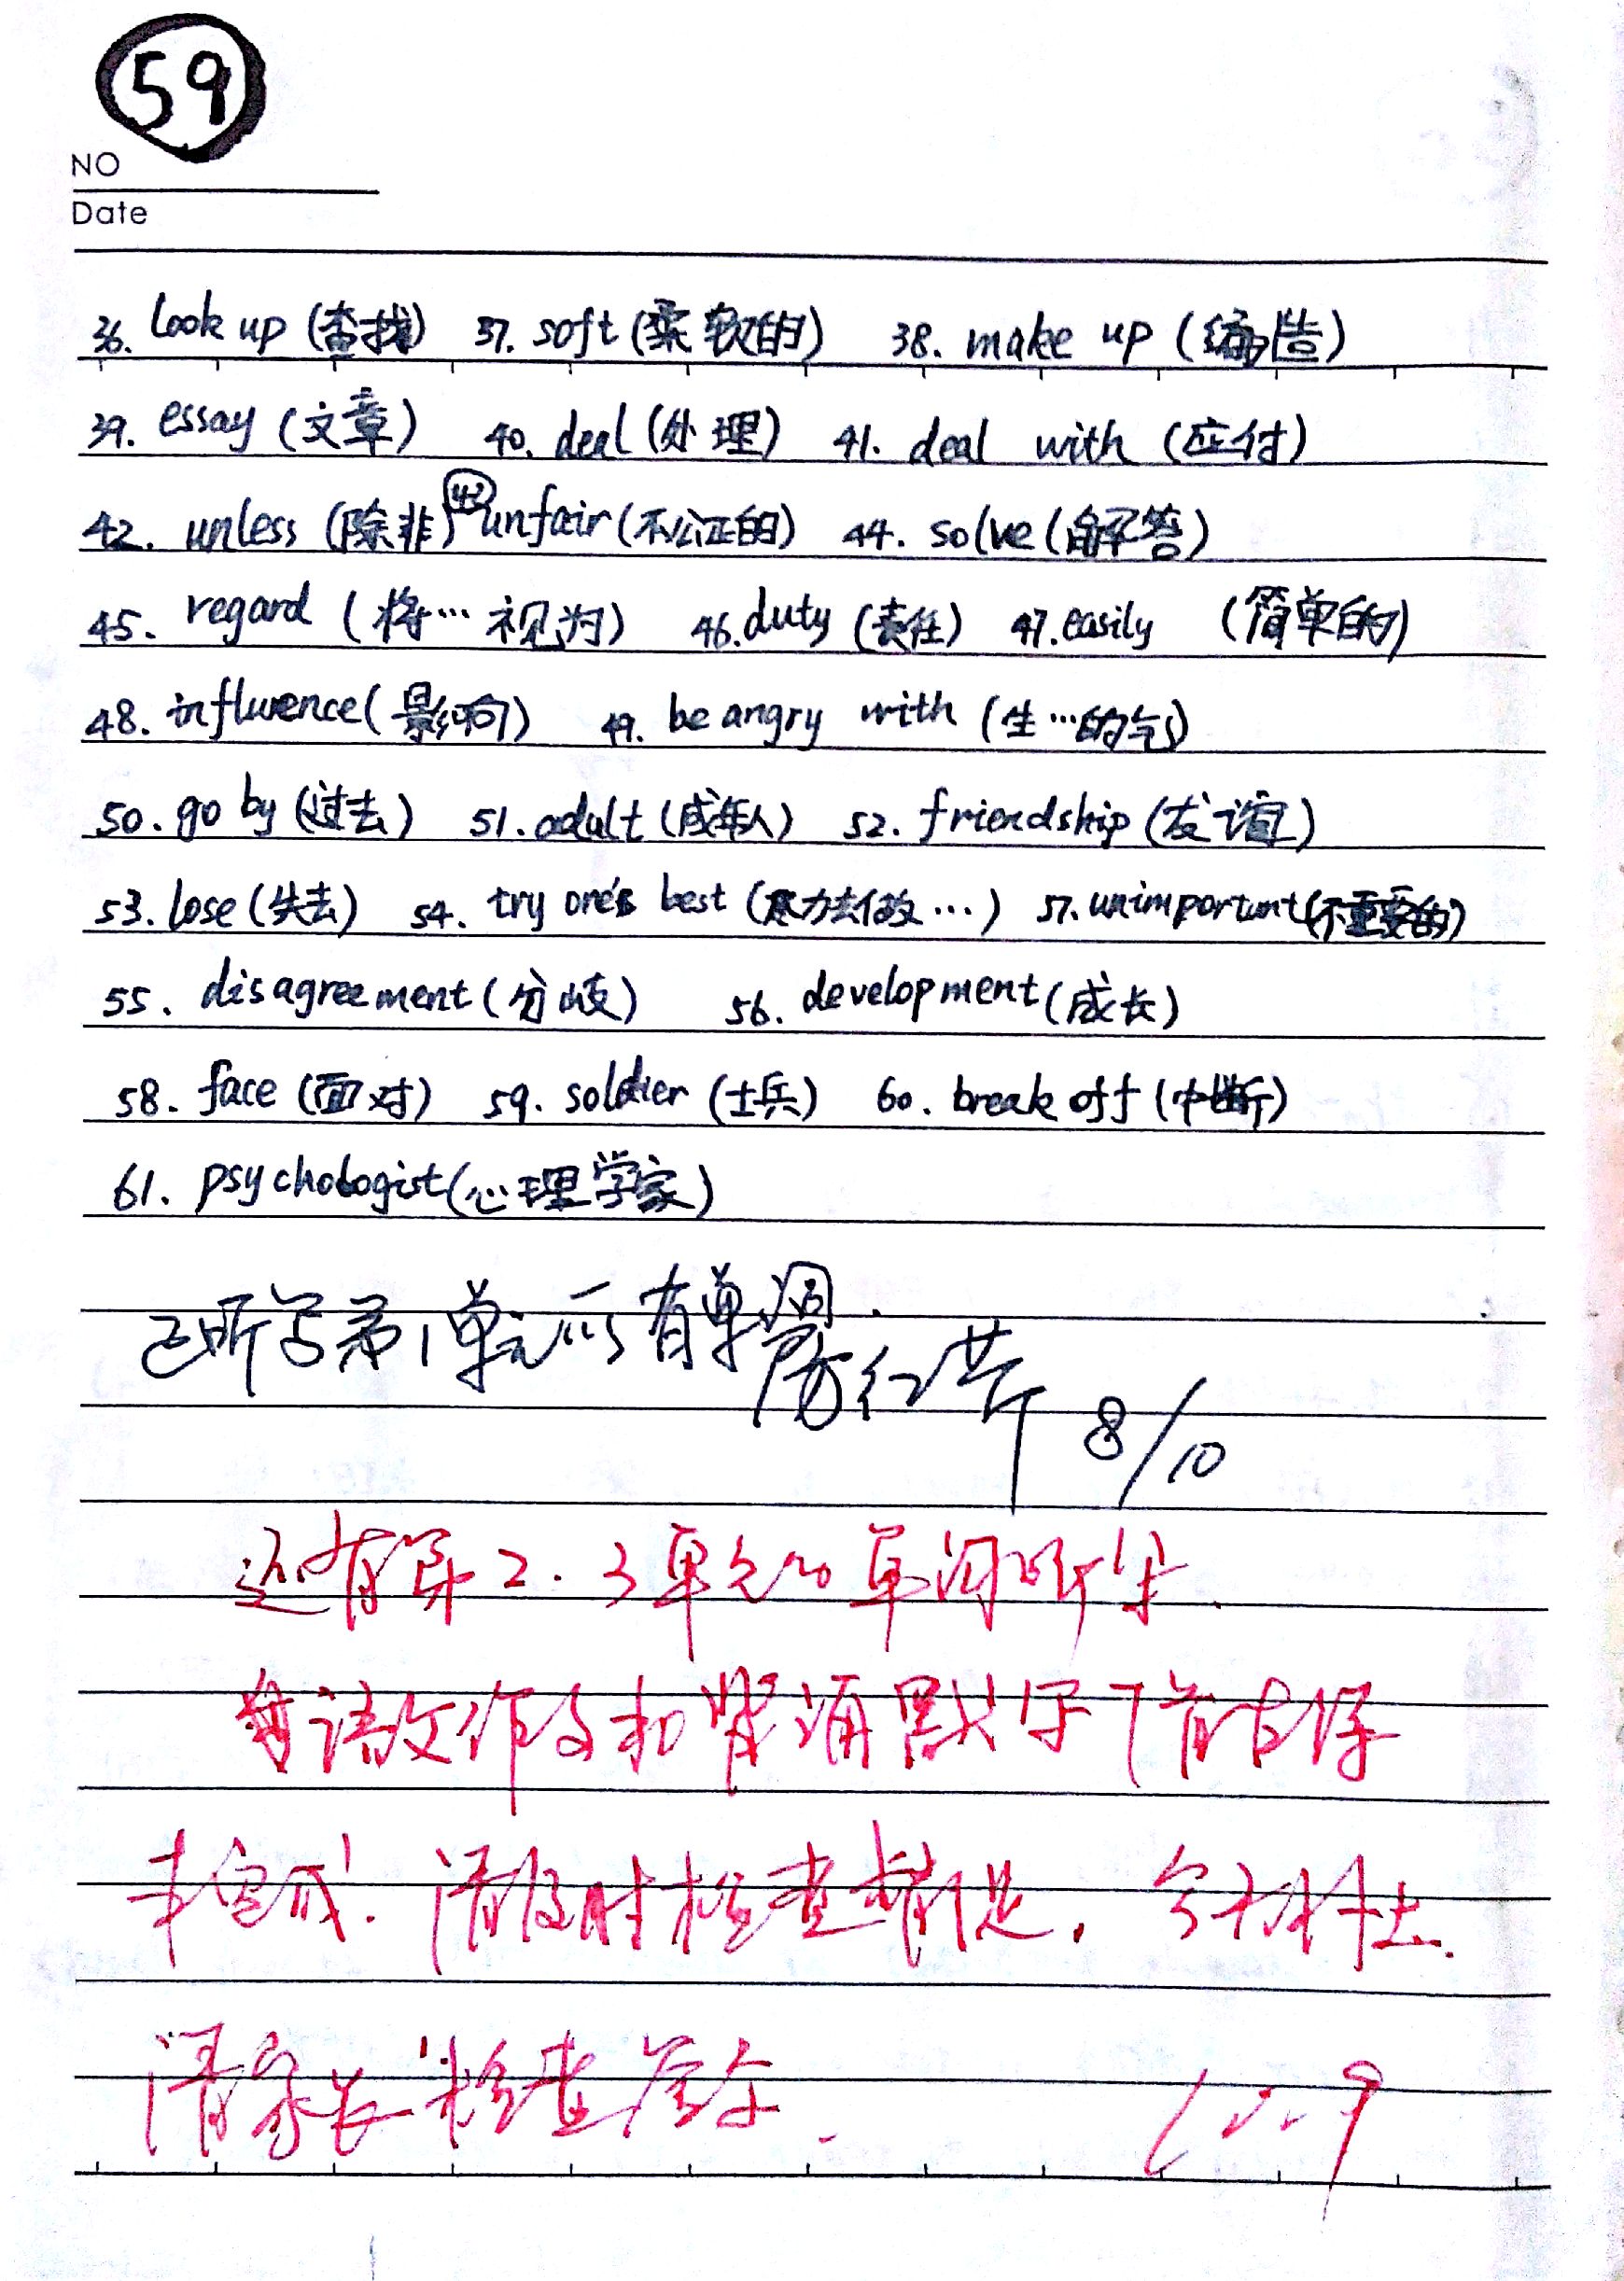 59
NO
Date
36. look up (查找) 37. soft (柔软的) 38. make up (编造)
39. essay (文章) 40. deal (处理) 41. deal with (应付)
42. unless (除非) 43 unfair (不公正的) 44. solve (解答)
45. regard (将…视为) 46. duty (责任) 47. easily (简单的)
48. influence (影响) 49. be angry with (生…的气)
50. go by (过去) 51. adult (成年人) 52. friendship (友谊)
53. lose (失去) 54. try one's best (尽力去做…) 57. unimportant (不重要的)
55. disagreement (分歧) 56. development (成长)
58. face (面对) 59. soldier (士兵) 60. break off (中断)
61. psychologist (心理学家)
已听写第1单元所有单词.
8/10
还有第2.3单元的单词听写.
语文作文和背诵默写
未完成. 请及时检查
请家长检查签字.